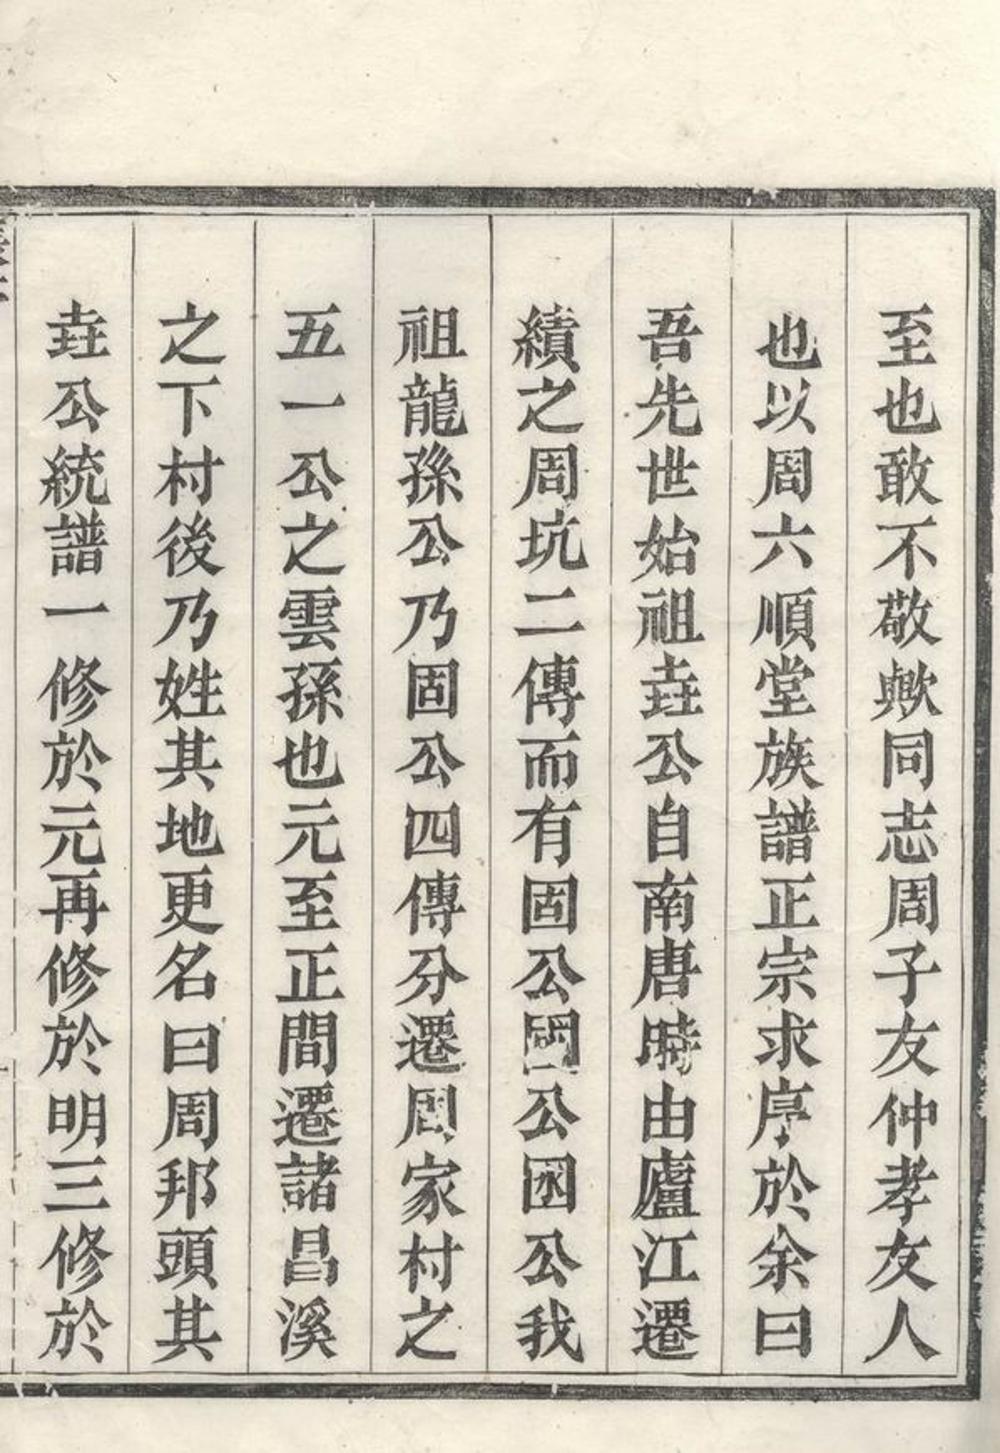 至也敢不敬歟同志周子友仲孝友人
也以周六順堂族譜正宗求序於余曰
吾先世始祖垚公自南唐時由廬江遷
績之周坑二傳而有固公公囦公我
祖龍孫公乃固公四傳分遷周家村之
五一公之雲孫也元至正間遷諸昌溪
之下村後乃姓其地更名曰周邦頭其
垚公統譜一修於元再修於明三修於